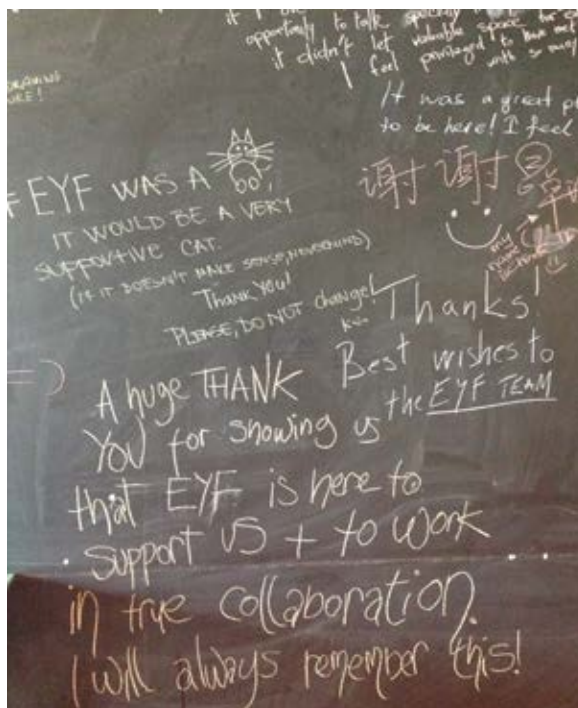 opportunity to talk
it didn't let
valuable space for
I feel privileged to have met
with so many
It was a great
to be here! I feel
DRAWING
EYF WAS A
IT WOULD BE A VERY
SUPPORTIVE CAT.
(IF IT DOESN'T MAKE SENSE, NEVERMIND)
THANK YOU!
PLEASE, DO NOT change!
谢谢
my name
Thanks!
Best wishes to
the EYF TEAM
A huge THANK
YOU for showing us
that EYF is here to
support us + to work
in true collaboration.
I will always remember this!